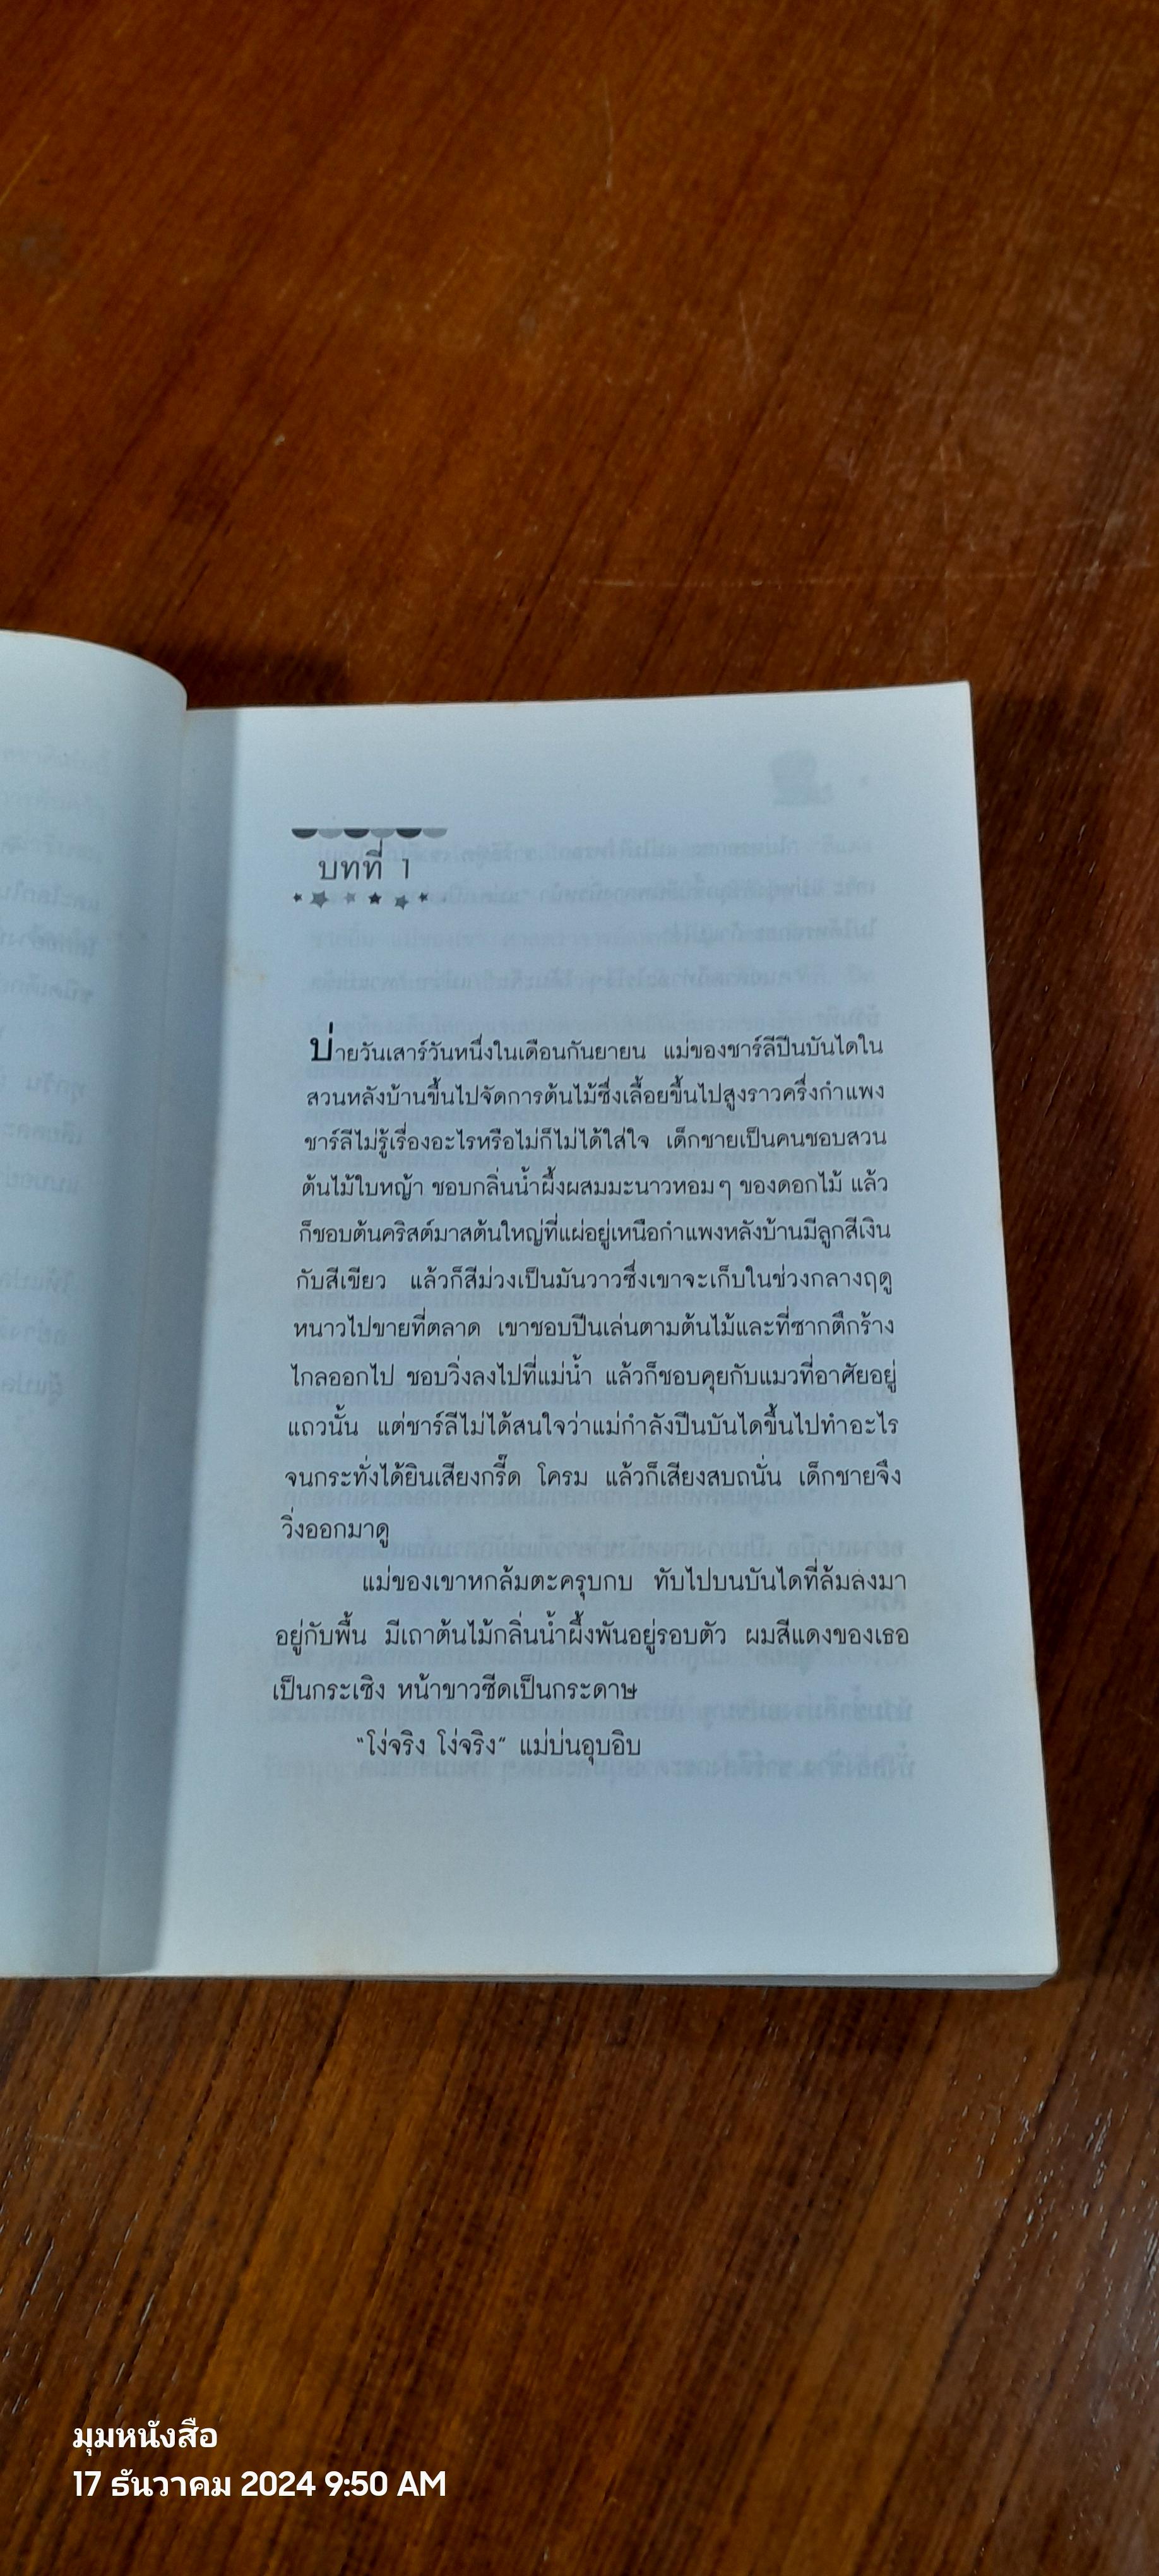 บทที่ 1
บ่ายวันเสาร์วันหนึ่งในเดือนกันยายน แม่ของชาร์ลีปีนบันไดใน
สวนหลังบ้านขึ้นไปจัดการต้นไม้ซึ่งเลื้อยขึ้นไปสูงราวครึ่งกำแพง
ชาร์ลีไม่รู้เรื่องอะไรหรือไม่ก็ไม่ได้ใส่ใจ เด็กชายเป็นคนชอบสวน
ต้นไม้ใบหญ้า ชอบกลิ่นน้ำผึ้งผสมมะนาวหอมๆ ของดอกไม้ แล้ว
ก็ชอบต้นคริสต์มาสต้นใหญ่ที่แผ่อยู่เหนือกำแพงหลังบ้านมีลูกสีเงิน
กับสีเขียว แล้วก็สีม่วงเป็นมันวาวซึ่งเขาจะเก็บในช่วงกลางฤดู
หนาวไปขายที่ตลาด เขาชอบปีนเล่นตามต้นไม้และที่ซากตึกร้าง
ไกลออกไป ชอบวิ่งลงไปที่แม่น้ำ แล้วก็ชอบคุยกับแมวที่อาศัยอยู่
แถวนั้น แต่ชาร์ลีไม่ได้สนใจว่าแม่กำลังปีนบันไดขึ้นไปทำอะไร
จนกระทั่งได้ยินเสียงกรี๊ด โครม แล้วก็เสียงสบถนั่น เด็กชายจึง
วิ่งออกมาดู
แม่ของเขาหกล้มตะครุบกบ ทับไปบนบันไดที่ล้มลงมา
อยู่กับพื้น มีเถาต้นไม้กลิ่นน้ำผึ้งพันอยู่รอบตัว ผมสีแดงของเธอ
เป็นกระเซิง หน้าขาวซีดเป็นกระดาษ
"โง่จริง โง่จริง" แม่บ่นอุบอิบ
มุมหนังสือ
17 ธันวาคม 2024 9:50 AM